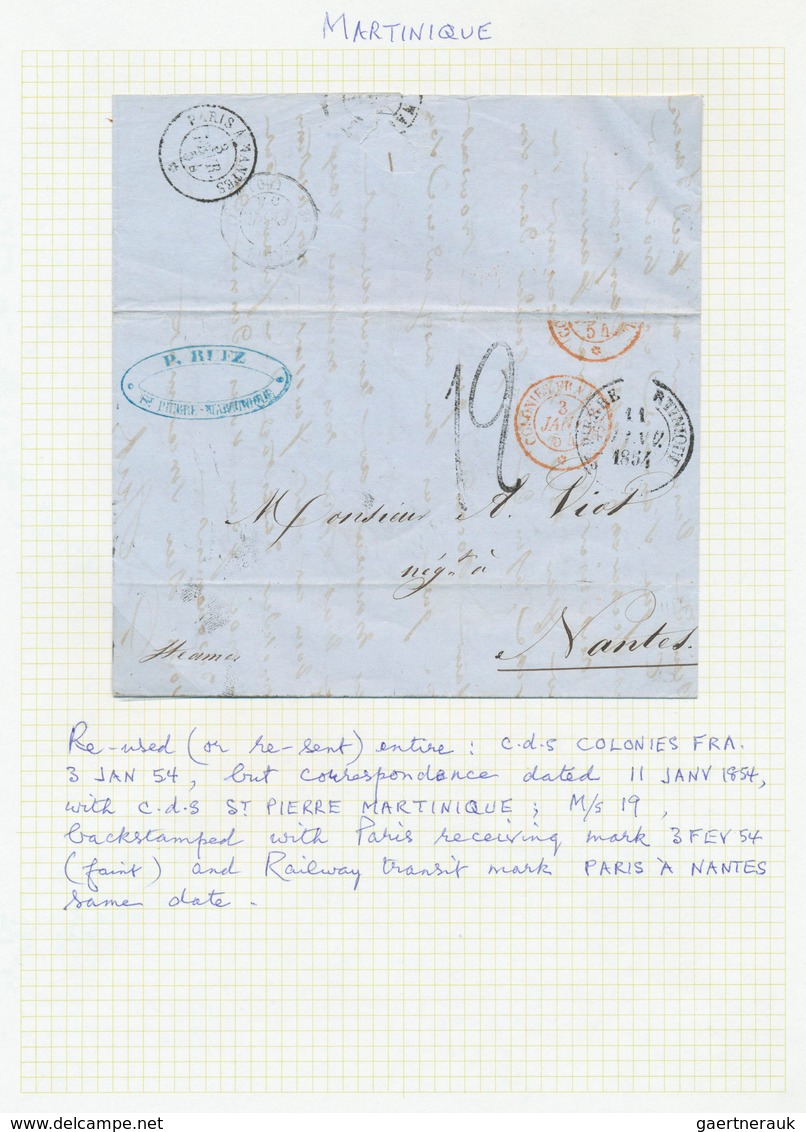 MARTINIQUE
PARIS A NANTES
3
54
P. RUFZ
St. PIERRE-MARTINIQUE
54
19
COLONIES FRA.
3
JAN
54
St PIERRE MARTINIQUE
11
JANV.
1854
Monsieur A. Viot
négt à
Nantes.
Steamer
Re-used (or re-sent) entire : c.d.s COLONIES FRA.
3 JAN 54, but correspondence dated 11 JANV 1854,
with c.d.s ST PIERRE MARTINIQUE ; M/s 19 ,
backstamped with Paris receiving mark 3 FEV 54
(faint) and Railway transit mark PARIS À NANTES
same date .
gaertnerauk